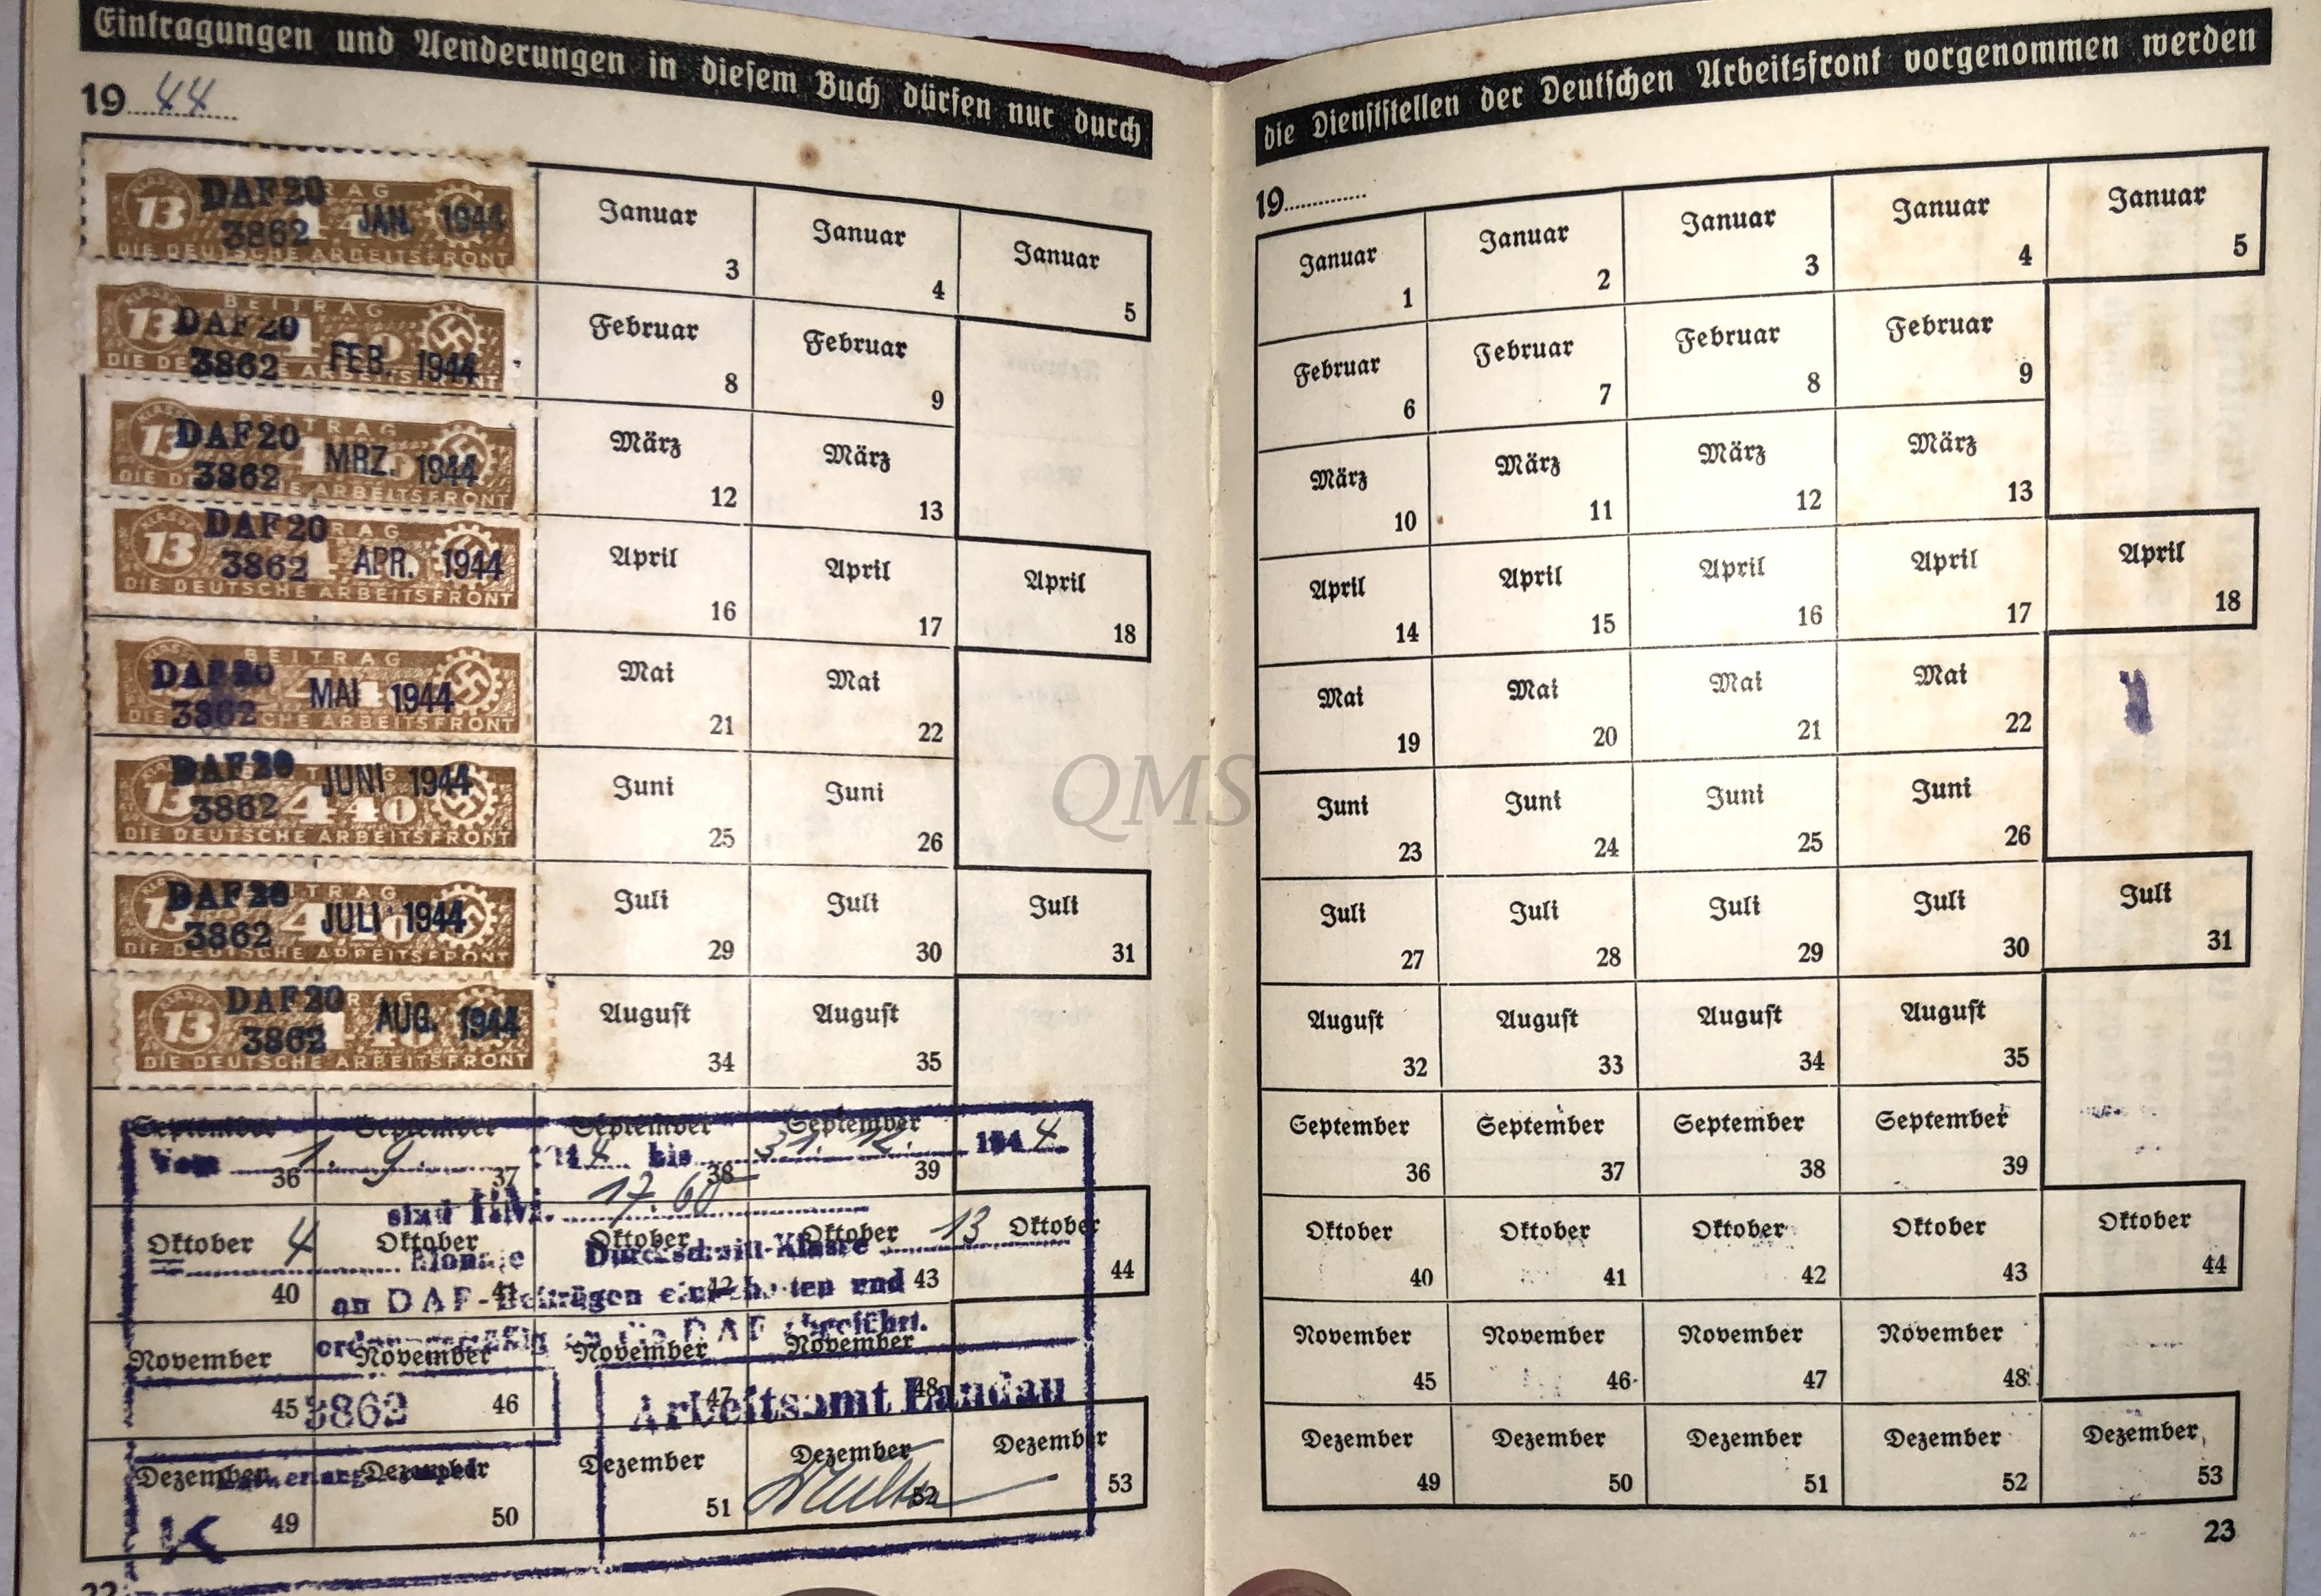 Eintragungen und Aenderungen in diesem Buch dürfen nur durch
19 44
KLASSE 13 DAF 20 3862 JAN. 1944
DIE DEUTSCHE ARBEITSFRONT
Januar 3 Januar 4 Januar 5
KLASSE 13 BEITRAG DAF 20 3862 FEB. 1944
ARBEITSFRONT
Februar 8 Februar 9
KLASSE 13 DAF 20 3862 MRZ. 1944
ARBEITSFRONT
März 12 März 13
KLASSE 13 DAF 20 3862 APR. 1944
DIE DEUTSCHE ARBEITSFRONT
April 16 April 17 April 18
BEITRAG DAF 20 3862 MAI 1944
ARBEITSFRONT
Mai 21 Mai 22
13 DAF 20 3862 JUNI 1944 4.40
DIE DEUTSCHE ARBEITSFRONT
Juni 25 Juni 26
DAF 20 3862 JULI 1944
DIE DEUTSCHE ARBEITSFRONT
Juli 29 Juli 30 Juli 31
KLASSE 13 DAF 20 3862 AUG. 1944
DIE DEUTSCHE ARBEITSFRONT
August 34 August 35
September 36 September 37 September 38 September 39
Vom 1. 9. 4 bis 31. 12. 1944
sind RM. 17.60
Oktober 40 Oktober 41 Oktober 42 Oktober 43 Oktober 44
= 4 Monate Durchschnitt-Klasse 13
an DAF-Beiträgen einbehalten und
ordnungsmäßig an die DAF abgeführt.
November 45 November 46 November 47 November 48
3862
Arbeitsamt Landau
Dezember 49 Dezember 50 Dezember 51 Dezember 52 Dezember 53
K
22
QMS
die Dienststellen der Deutschen Arbeitsfront vorgenommen werden
19
Januar 1 Januar 2 Januar 3 Januar 4 Januar 5
Februar 6 Februar 7 Februar 8 Februar 9
März 10 März 11 März 12 März 13
April 14 April 15 April 16 April 17 April 18
Mai 19 Mai 20 Mai 21 Mai 22
Juni 23 Juni 24 Juni 25 Juni 26
Juli 27 Juli 28 Juli 29 Juli 30 Juli 31
August 32 August 33 August 34 August 35
September 36 September 37 September 38 September 39
Oktober 40 Oktober 41 Oktober 42 Oktober 43 Oktober 44
November 45 November 46 November 47 November 48
Dezember 49 Dezember 50 Dezember 51 Dezember 52 Dezember 53
23